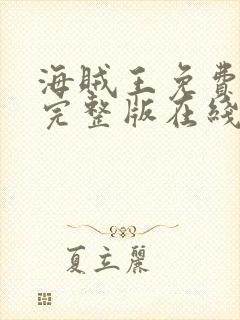 海贼王免費
完整版在綫
夏立麗